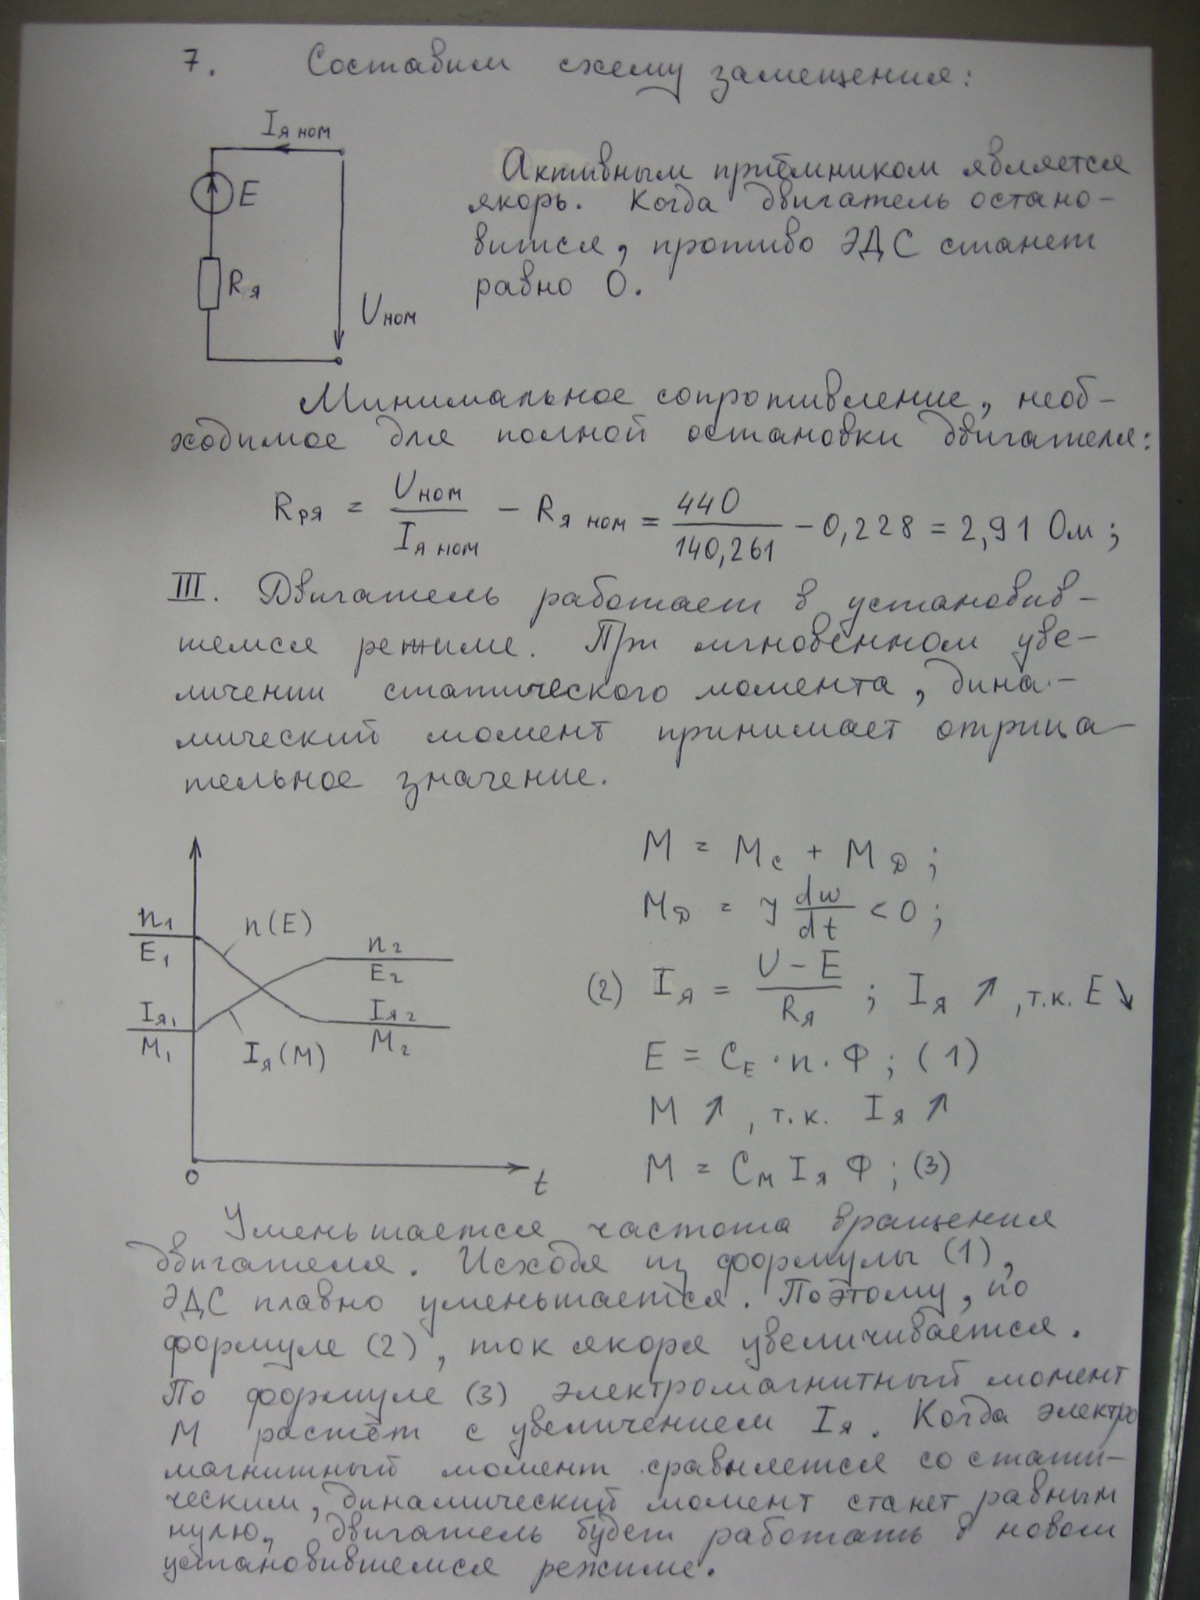 7. Составим схему замещения:
Iя ном
E
Rя
Uном
Активным приёмником является
якорь. Когда двигатель остано-
вится, противо ЭДС станет
равно 0.
Минимальное сопротивление, необ-
ходимое для полной остановки двигателя:
Rря = Uном / Iя ном − Rя ном = 440 / 140,261 − 0,228 = 2,91 Ом;
III. Двигатель работает в установив-
шемся режиме. При мгновенном уве-
личении статического момента, дина-
мический момент принимает отрица-
тельное значение.
n1
E1
n(E)
n2
E2
Iя1
M1
Iя(M)
Iя2
M2
0
t
M = Mc + MД;
MД = J dω/dt < 0;
(2) Iя = U − E / Rя; Iя ↗, т.к. E ↘
E = CE · n · Ф; (1)
M ↗, т.к. Iя ↗
M = CM Iя Ф; (3)
Уменьшается частота вращения
двигателя. Исходя из формулы (1),
ЭДС плавно уменьшается. Поэтому, по
формуле (2), ток якоря увеличивается.
По формуле (3) электромагнитный момент
M растёт с увеличением Iя. Когда электро
магнитный момент сравняется со стати-
ческим, динамический момент станет равным
нулю, двигатель будет работать в новом
установившемся режиме.